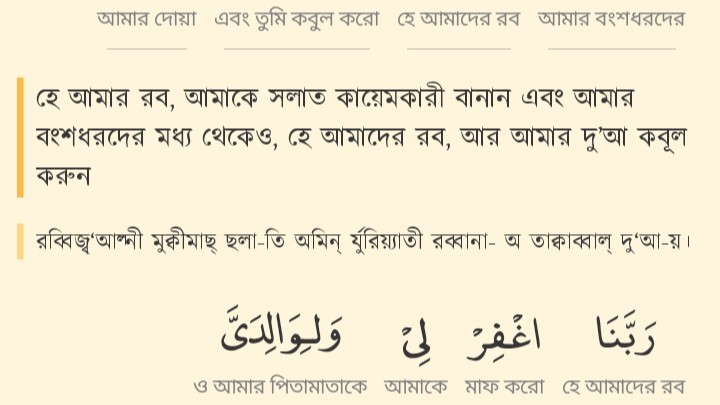 আমার দোয়া এবং তুমি কবুল করো হে আমাদের রব আমার বংশধরদের
হে আমার রব, আমাকে সলাত কায়েমকারী বানান এবং আমার
বংশধরদের মধ্য থেকেও, হে আমাদের রব, আর আমার দু’আ কবূল
করুন
রব্বিজ্ব‘আল্নী মুক্বীমাছ্ ছলা-তি অমিন্ র্যুরিয়্যাতী রব্বানা- অ তাক্বাব্বাল্ দু‘আ-য়।
رَبَّنَا اغْفِرْ لِيْ وَلِوَالِدَىَّ
ও আমার পিতামাতাকে আমাকে মাফ করো হে আমাদের রব